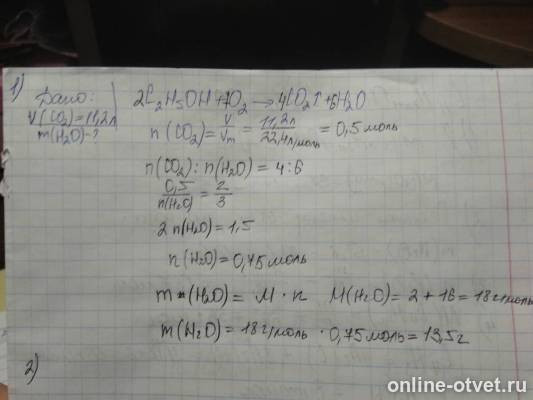 1)
Дано:
V(CO₂)=11,2л
m(H₂O)-?
2C₂H₅OH+7O₂→4CO₂↑+6H₂O
n(CO₂)=V/Vm=11,2л/22,4л/моль=0,5моль
n(CO₂):n(H₂O)=4:6
0,5/n(H₂O)=2/3
2n(H₂O)=1,5
n(H₂O)=0,75моль
m(H₂O)=M·n M(H₂O)=2+16=18г/моль
m(H₂O)=18г/моль·0,75моль=13,5г
2)
online-otvet.ru